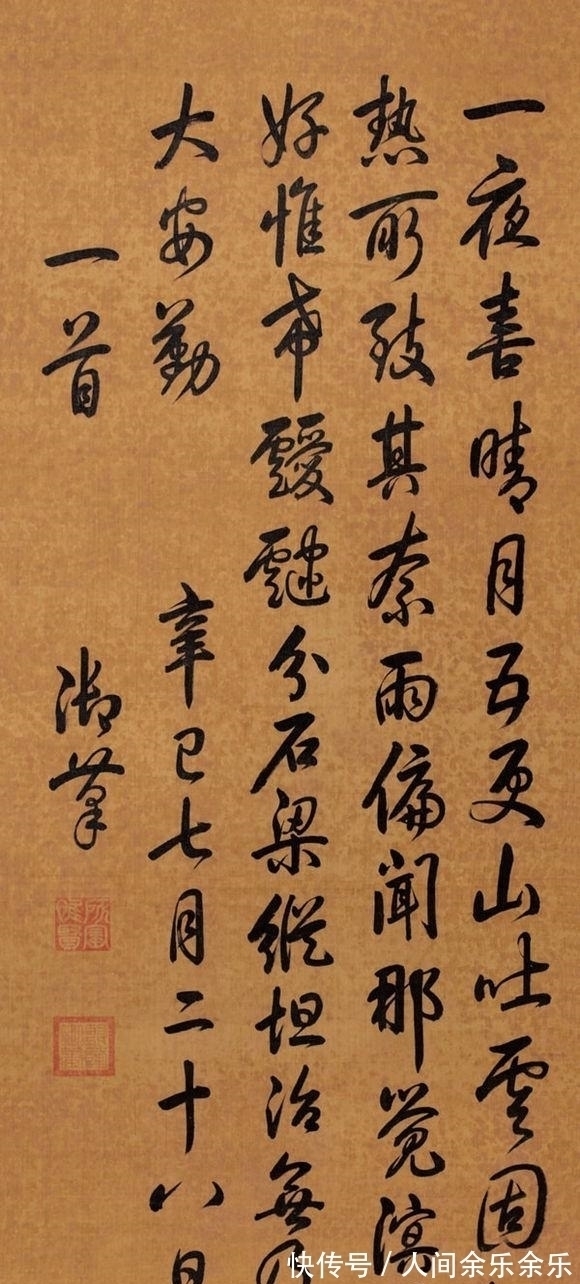 一夜喜晴月五更山吐雲固
熱所致其奈雨偏聞那覺
好惟希靉靆分石梁縱坦治無
大安勤
辛巳七月二十八日
一首
御筆
快传号 / 人间余乐余乐